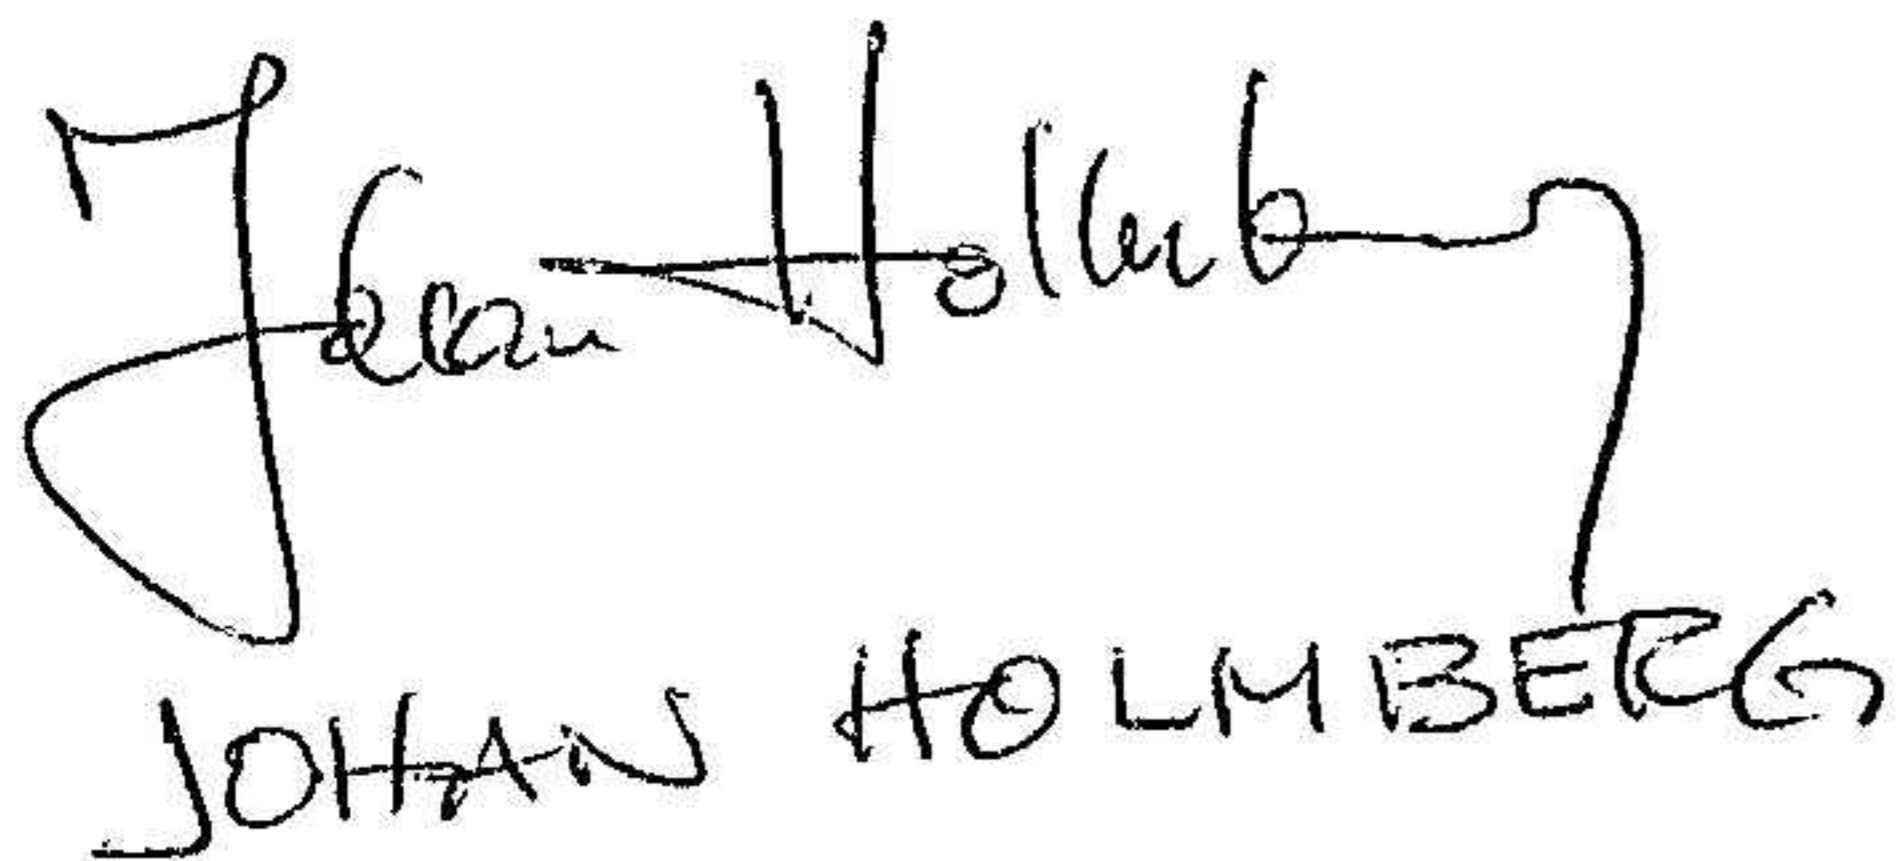 Johan Holmberg
JOHAN HOLMBERG